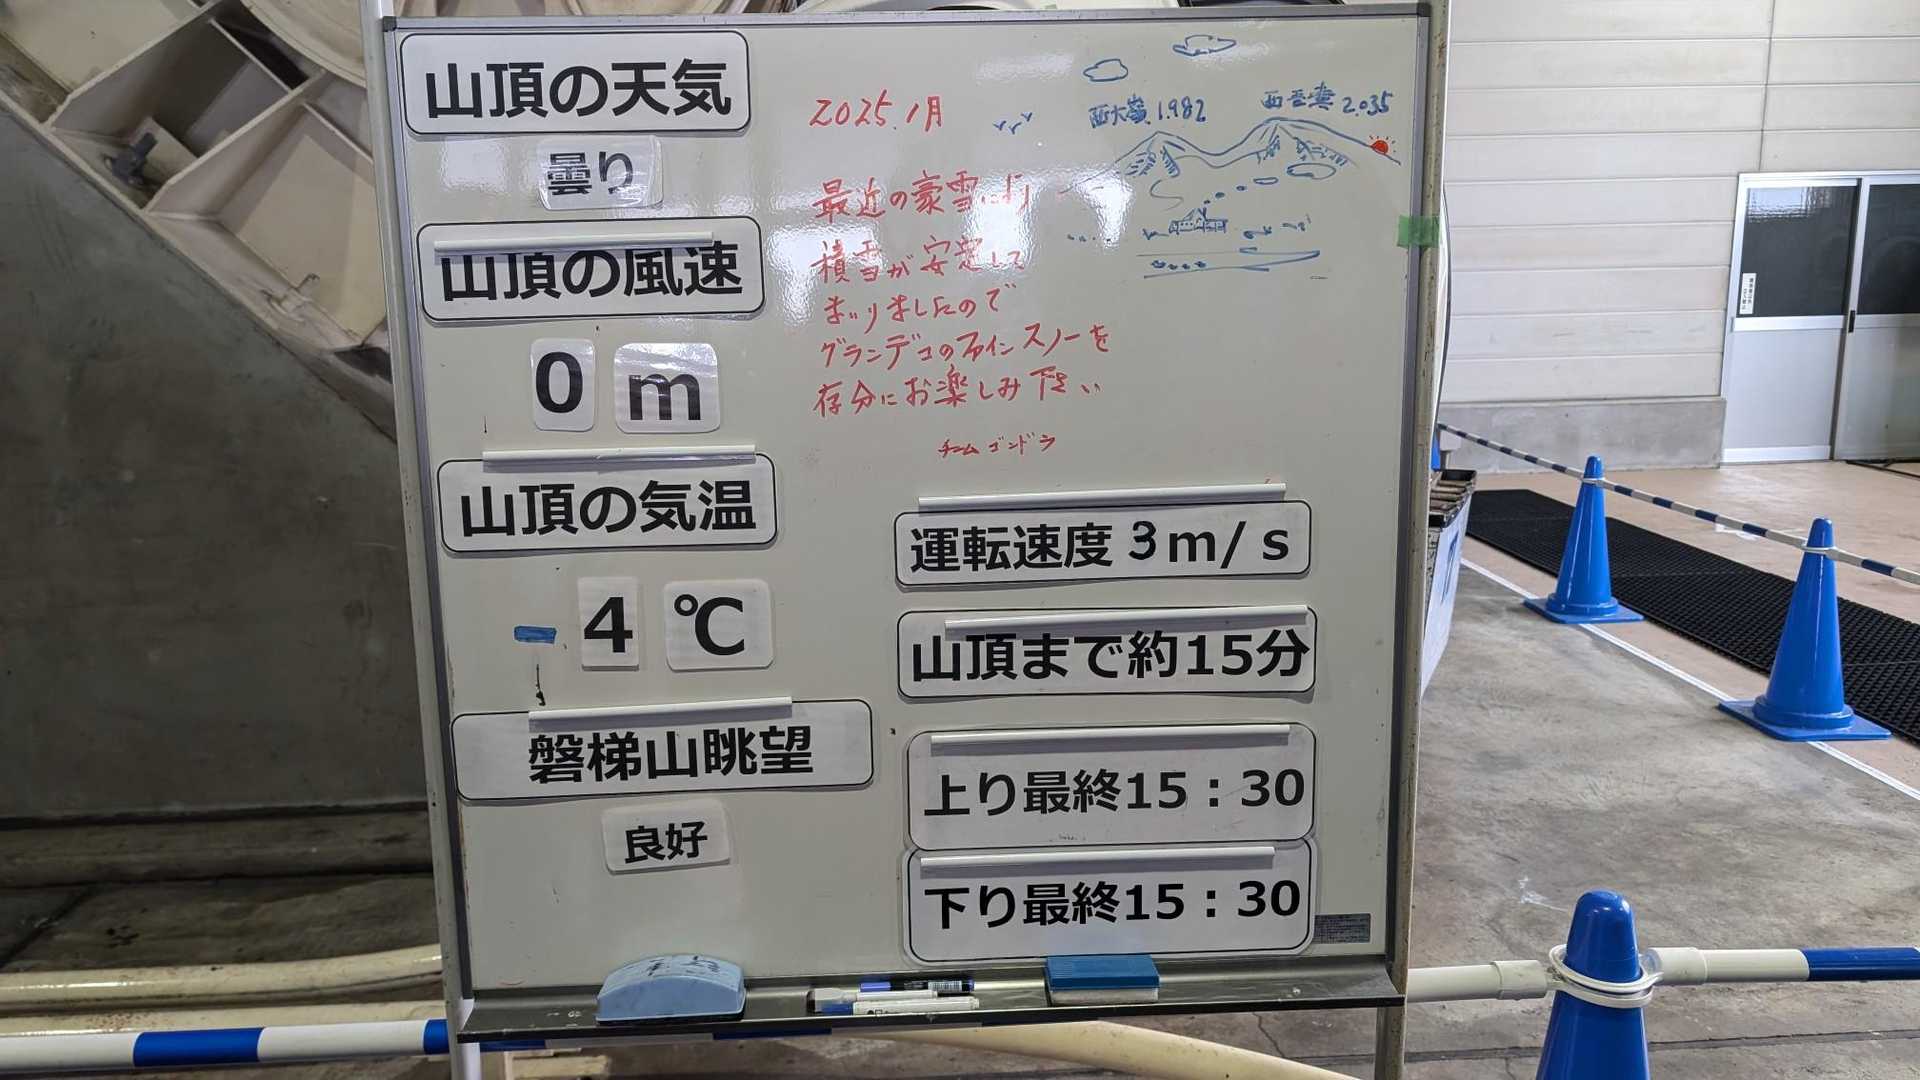 山頂の天気
曇り
山頂の風速
0 m
山頂の気温
-4 ℃
磐梯山眺望
良好
2025.1月
西大巓1.982
西吾妻2.035
最近の豪雪により
積雪が安定して
まいりましたので
グランデコのファインスノーを
存分にお楽しみ下さい
チームゴンドラ
運転速度3m/s
山頂まで約15分
上り最終15：30
下り最終15：30